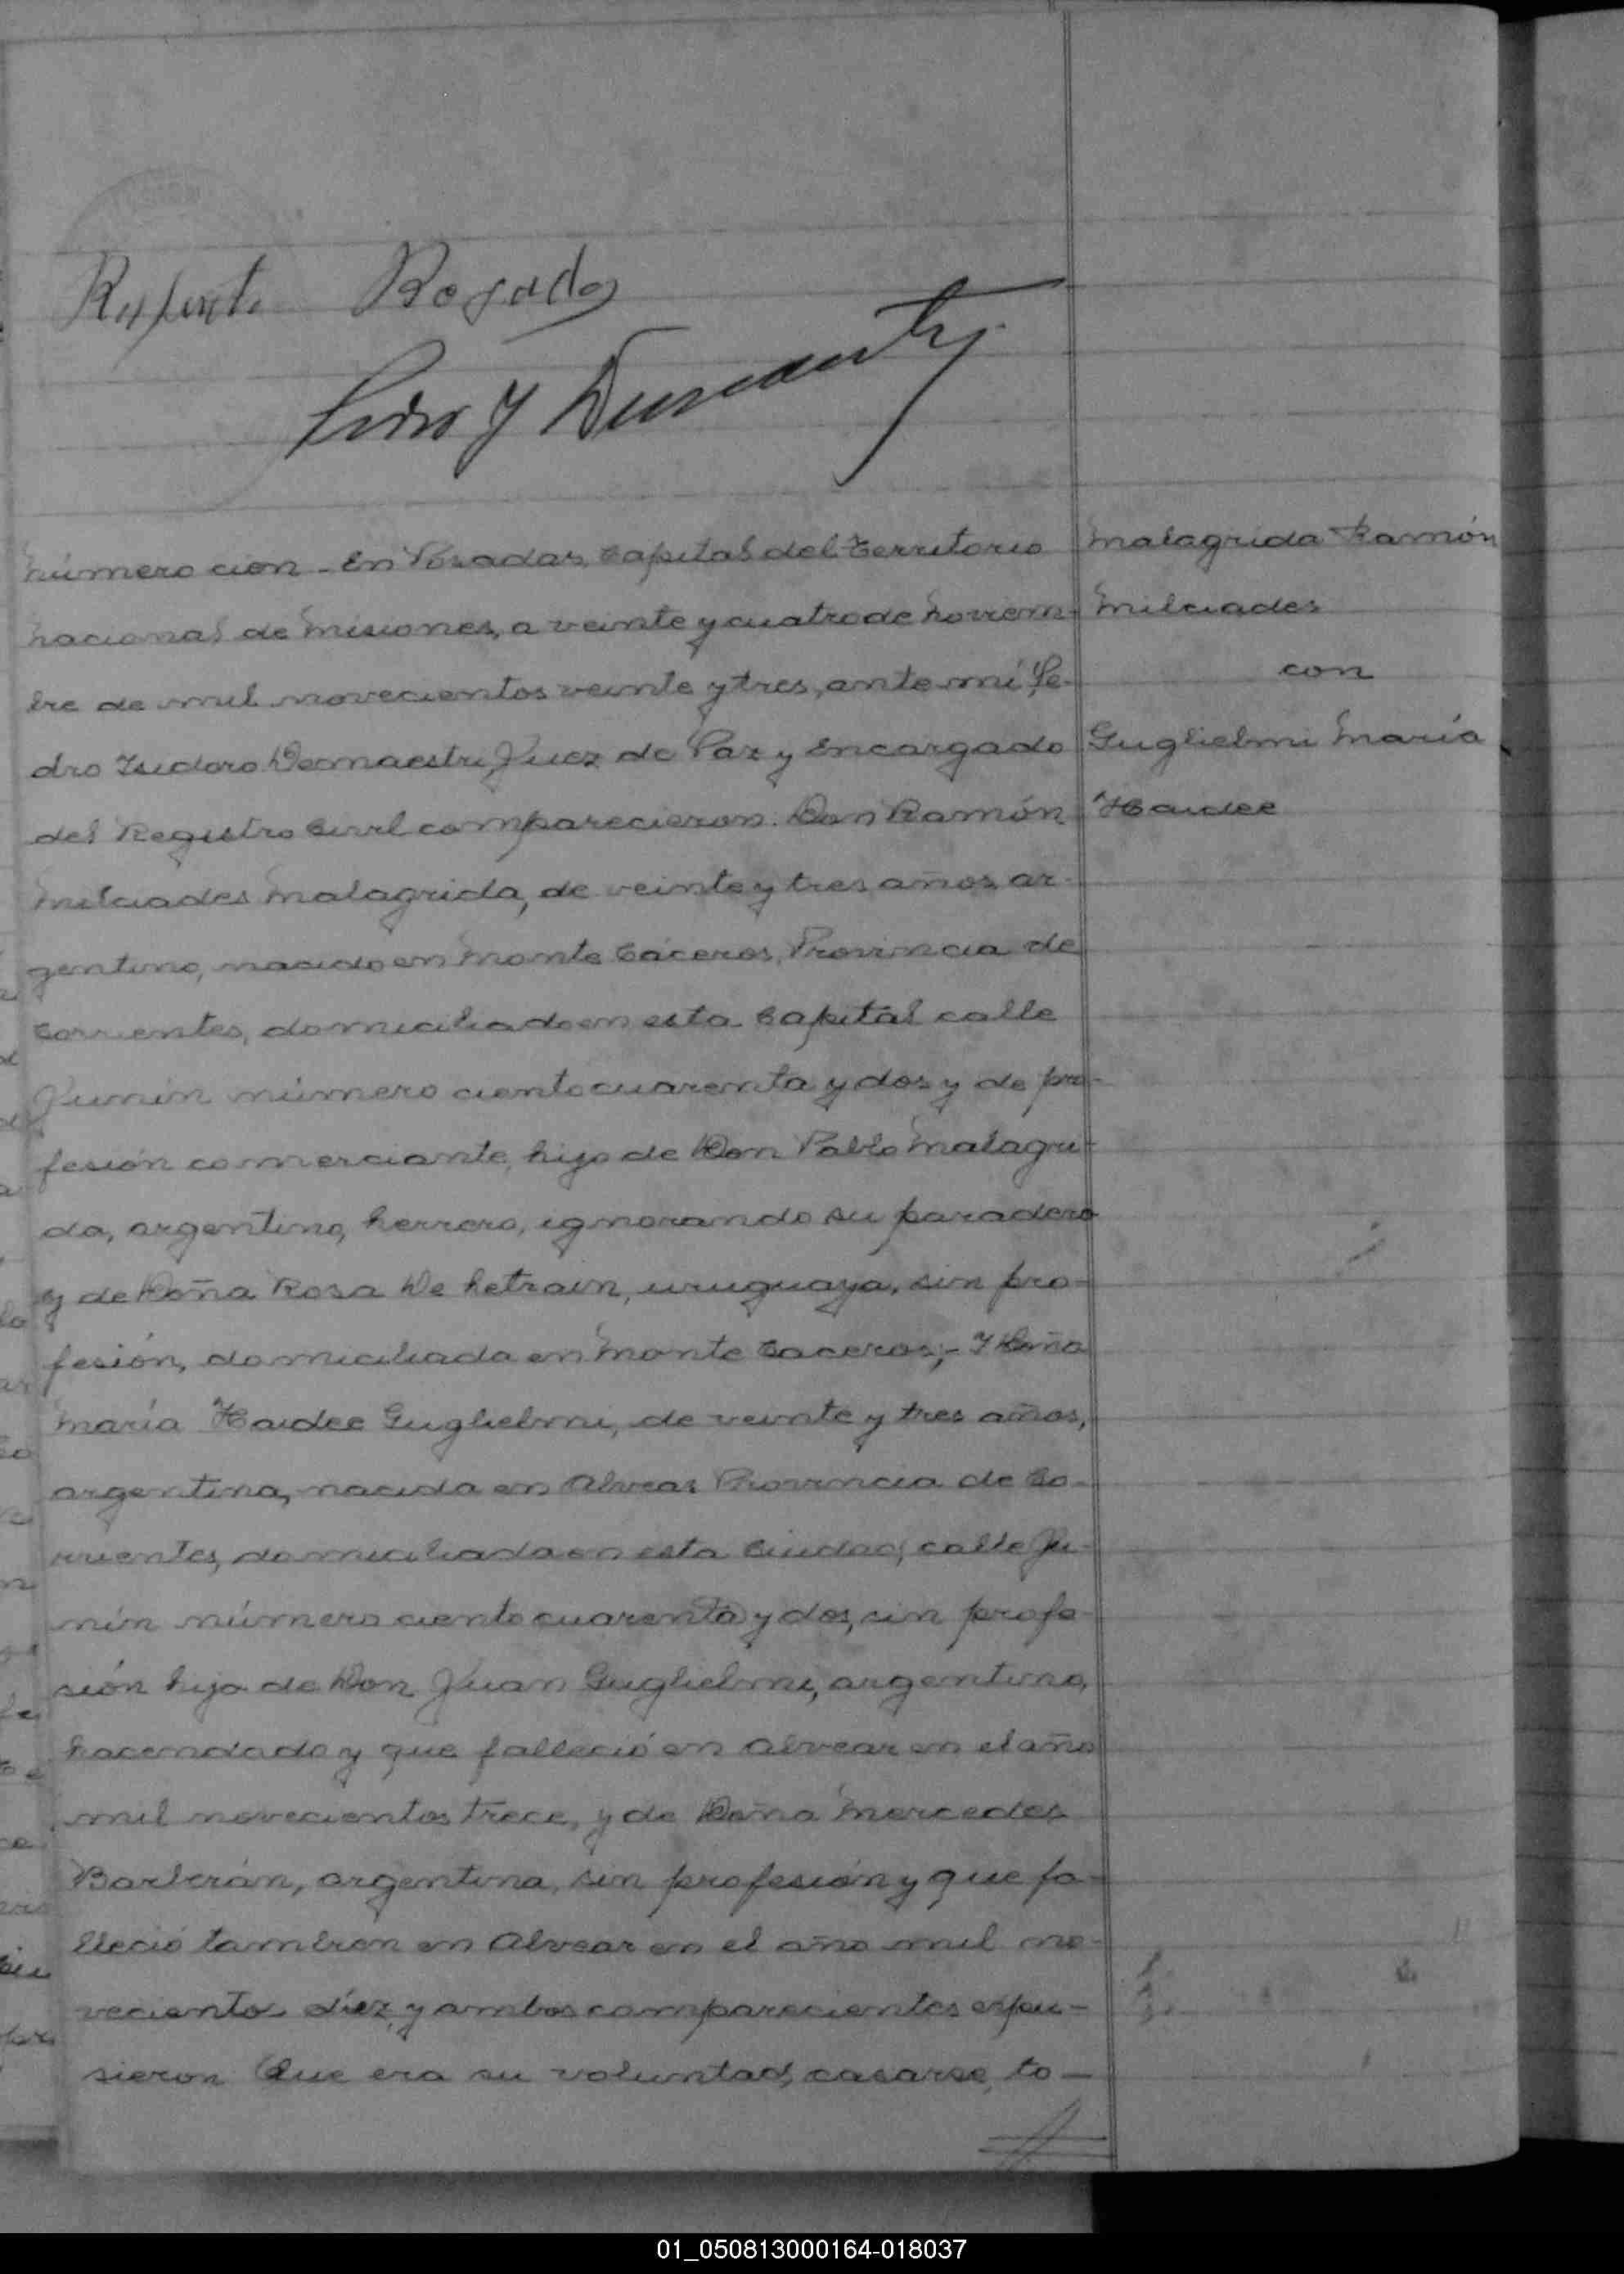 Rogado
Pedro Y Demaestri
Número cien - En Posadas, Capital del Territorio
Nacional de Misiones, a veinte y cuatro de Noviem-
bre de mil novecientos veinte y tres, ante mí Pe-
dro Isidoro Demaestri, Juez de Paz y Encargado
del Registro Civil comparecieron: Don Ramón
Milciades Malagrida, de veinte y tres años, ar-
gentino, nacido en Monte Cáceros, Provincia de
Corrientes, domiciliado en esta Capital calle
Junin número ciento cuarenta y dos y de pro-
fesión comerciante, hijo de Don Pablo Malagri-
da, argentino, herrero, ignorando su paradero
y de Doña Rosa De uruguaya, sin pro-
fesión, domiciliada en Monte Caceros;- Y Doña
María Haidee Guglielmi, de veinte y tres años,
argentina, nacida en Alvear Provincia de Co-
rrientes, domiciliada en esta Ciudad, calle Ju-
nin número ciento cuarenta y dos, sin profe-
sión hija de Don Juan Guglielmi, argentino,
hacendado y que falleció en Alvear en el año
mil novecientos trece, y de Doña Mercedes
Barberán, argentina, sin profesión y que fa-
lleció también en Alvear en el año mil no-
veciento diez, y ambos comparecientes expu-
sieron Que era su voluntad, casarse, to-
Malagrida Ramón
Milciades
con
Guglielmi María
Haidee
01_050813000164-018037